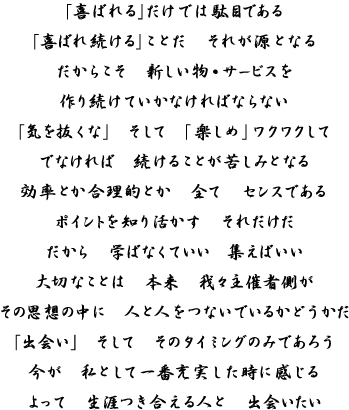 「喜ばれる」だけでは駄目である
「喜ばれ続ける」ことだ　それが源となる
だからこそ　新しい物・サービスを
作り続けていかなければならない
「気を抜くな」　そして　「楽しめ」ワクワクして
でなければ　続けることが苦しみとなる
効率とか合理的とか　全て　センスである
ポイントを知り活かす　それだけだ
だから　学ばなくていい　集えばいい
大切なことは　本来　我々主催者側が
その思想の中に　人と人をつないでいるかどうかだ
「出会い」　そして　そのタイミングのみであろう
今が　私として一番充実した時に感じる
よって　生涯つき合える人と　出会いたい